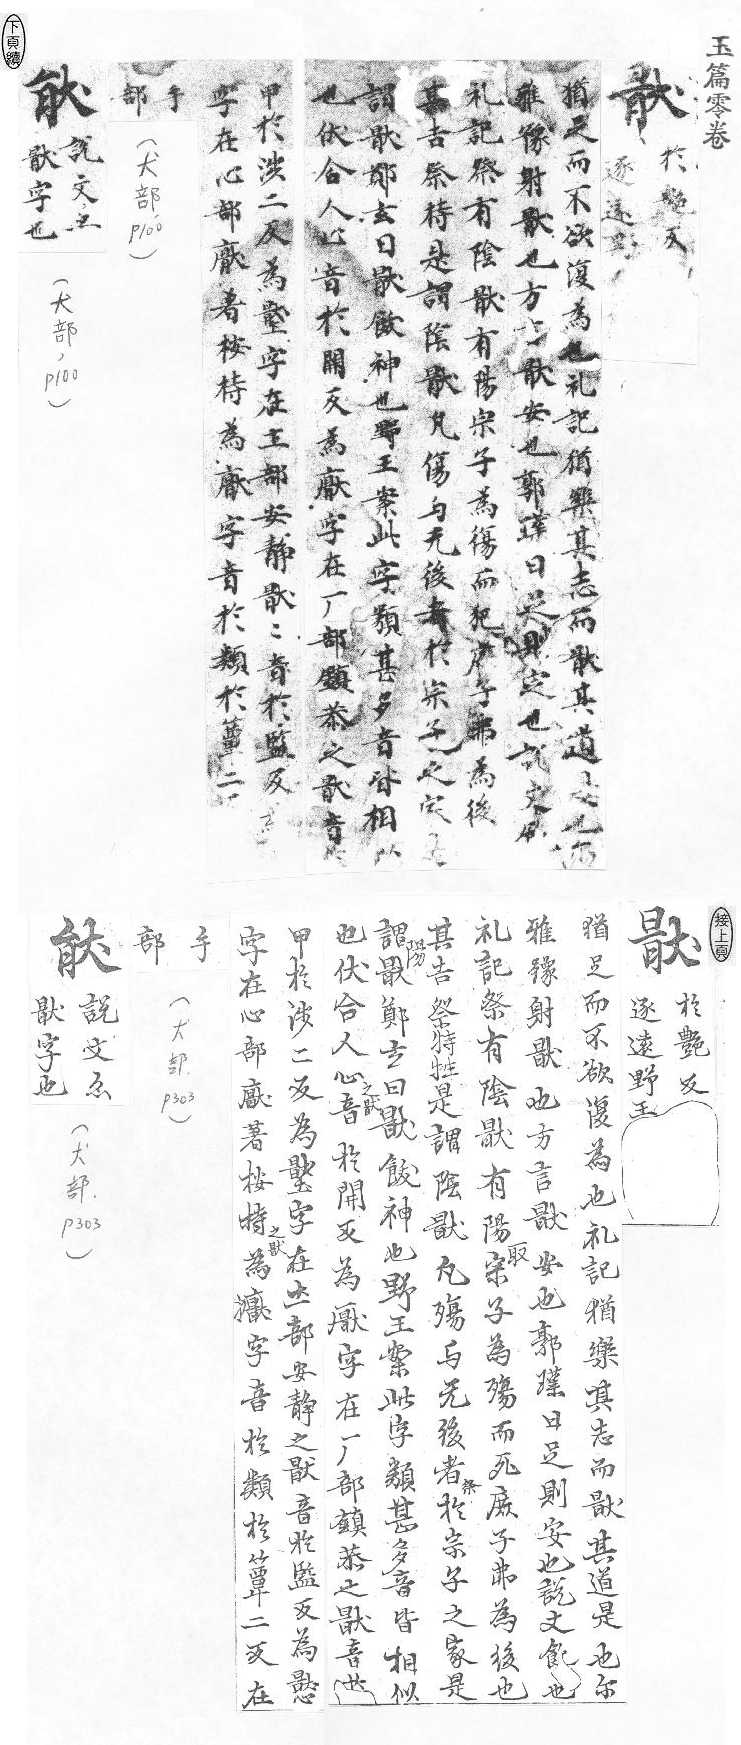 玉篇零卷
猒
於艷反
逐遠野
猶足而不欲復為也礼記猶樂其志而猒其道是也尒
雅豫射猒也方言猒安也郭璞曰足則定也說文
礼記祭有陰猒有陽宗子為殤而死庶子弗為後
其吉祭特是謂陰猒凡傷与无後者於宗子之家
謂猒鄭玄曰猒飫神也野王案此字類甚多音皆相似
也伏合人心音於開反為厭字在厂部鎮恭之猒音
甲於涉二反為壓字在土部安靜猒〻音於監反
字在心部厭著按持為擪字音於類於簟二
手部
(犬部, p100)
㹯
說文亦
猒字也
(犬部, p100)
下頁續
接上頁
猒
於艷反
逐遠野王
猶足而不欲復為也礼記猶樂其志而猒其道是也尒
雅豫射猒也方言猒安也郭璞曰足則安也說文飽也
礼記祭有陰猒有陽宗子為殤而死庶子弗為後也
其吉祭特牲是謂陰猒凡殤与无後者祭於宗子之家是
謂陽猒鄭玄曰猒飫神也野王案此字類甚多音皆相似
也伏合人心之猒音於開反為厭字在厂部鎮恭之猒音於
甲於涉二反為壓字在土部安靜之猒音於監反為懕
字在心部厭著按持之猒為擪字音於類於簟二反在
手部
(犬部. p303)
㹯
說文亦
猒字也
(犬部. p303)